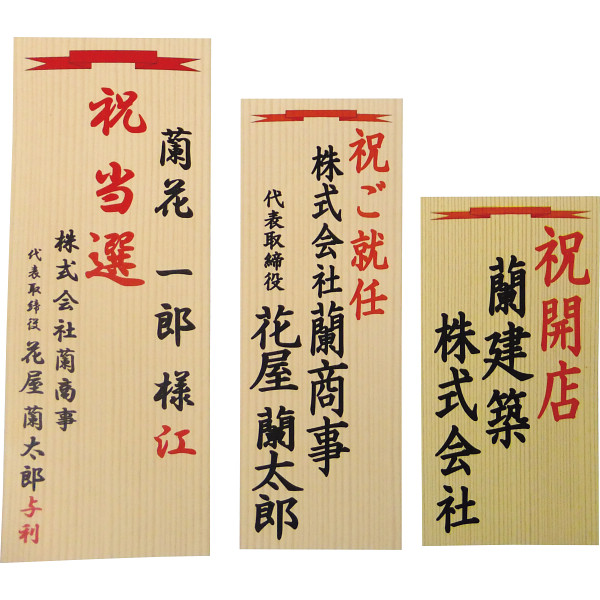 蘭花 一郎 様江
祝当選
株式会社蘭商事
代表取締役 花屋 蘭太郎与利
祝ご就任
株式会社蘭商事
代表取締役 花屋 蘭太郎
祝開店
蘭建築
株式会社